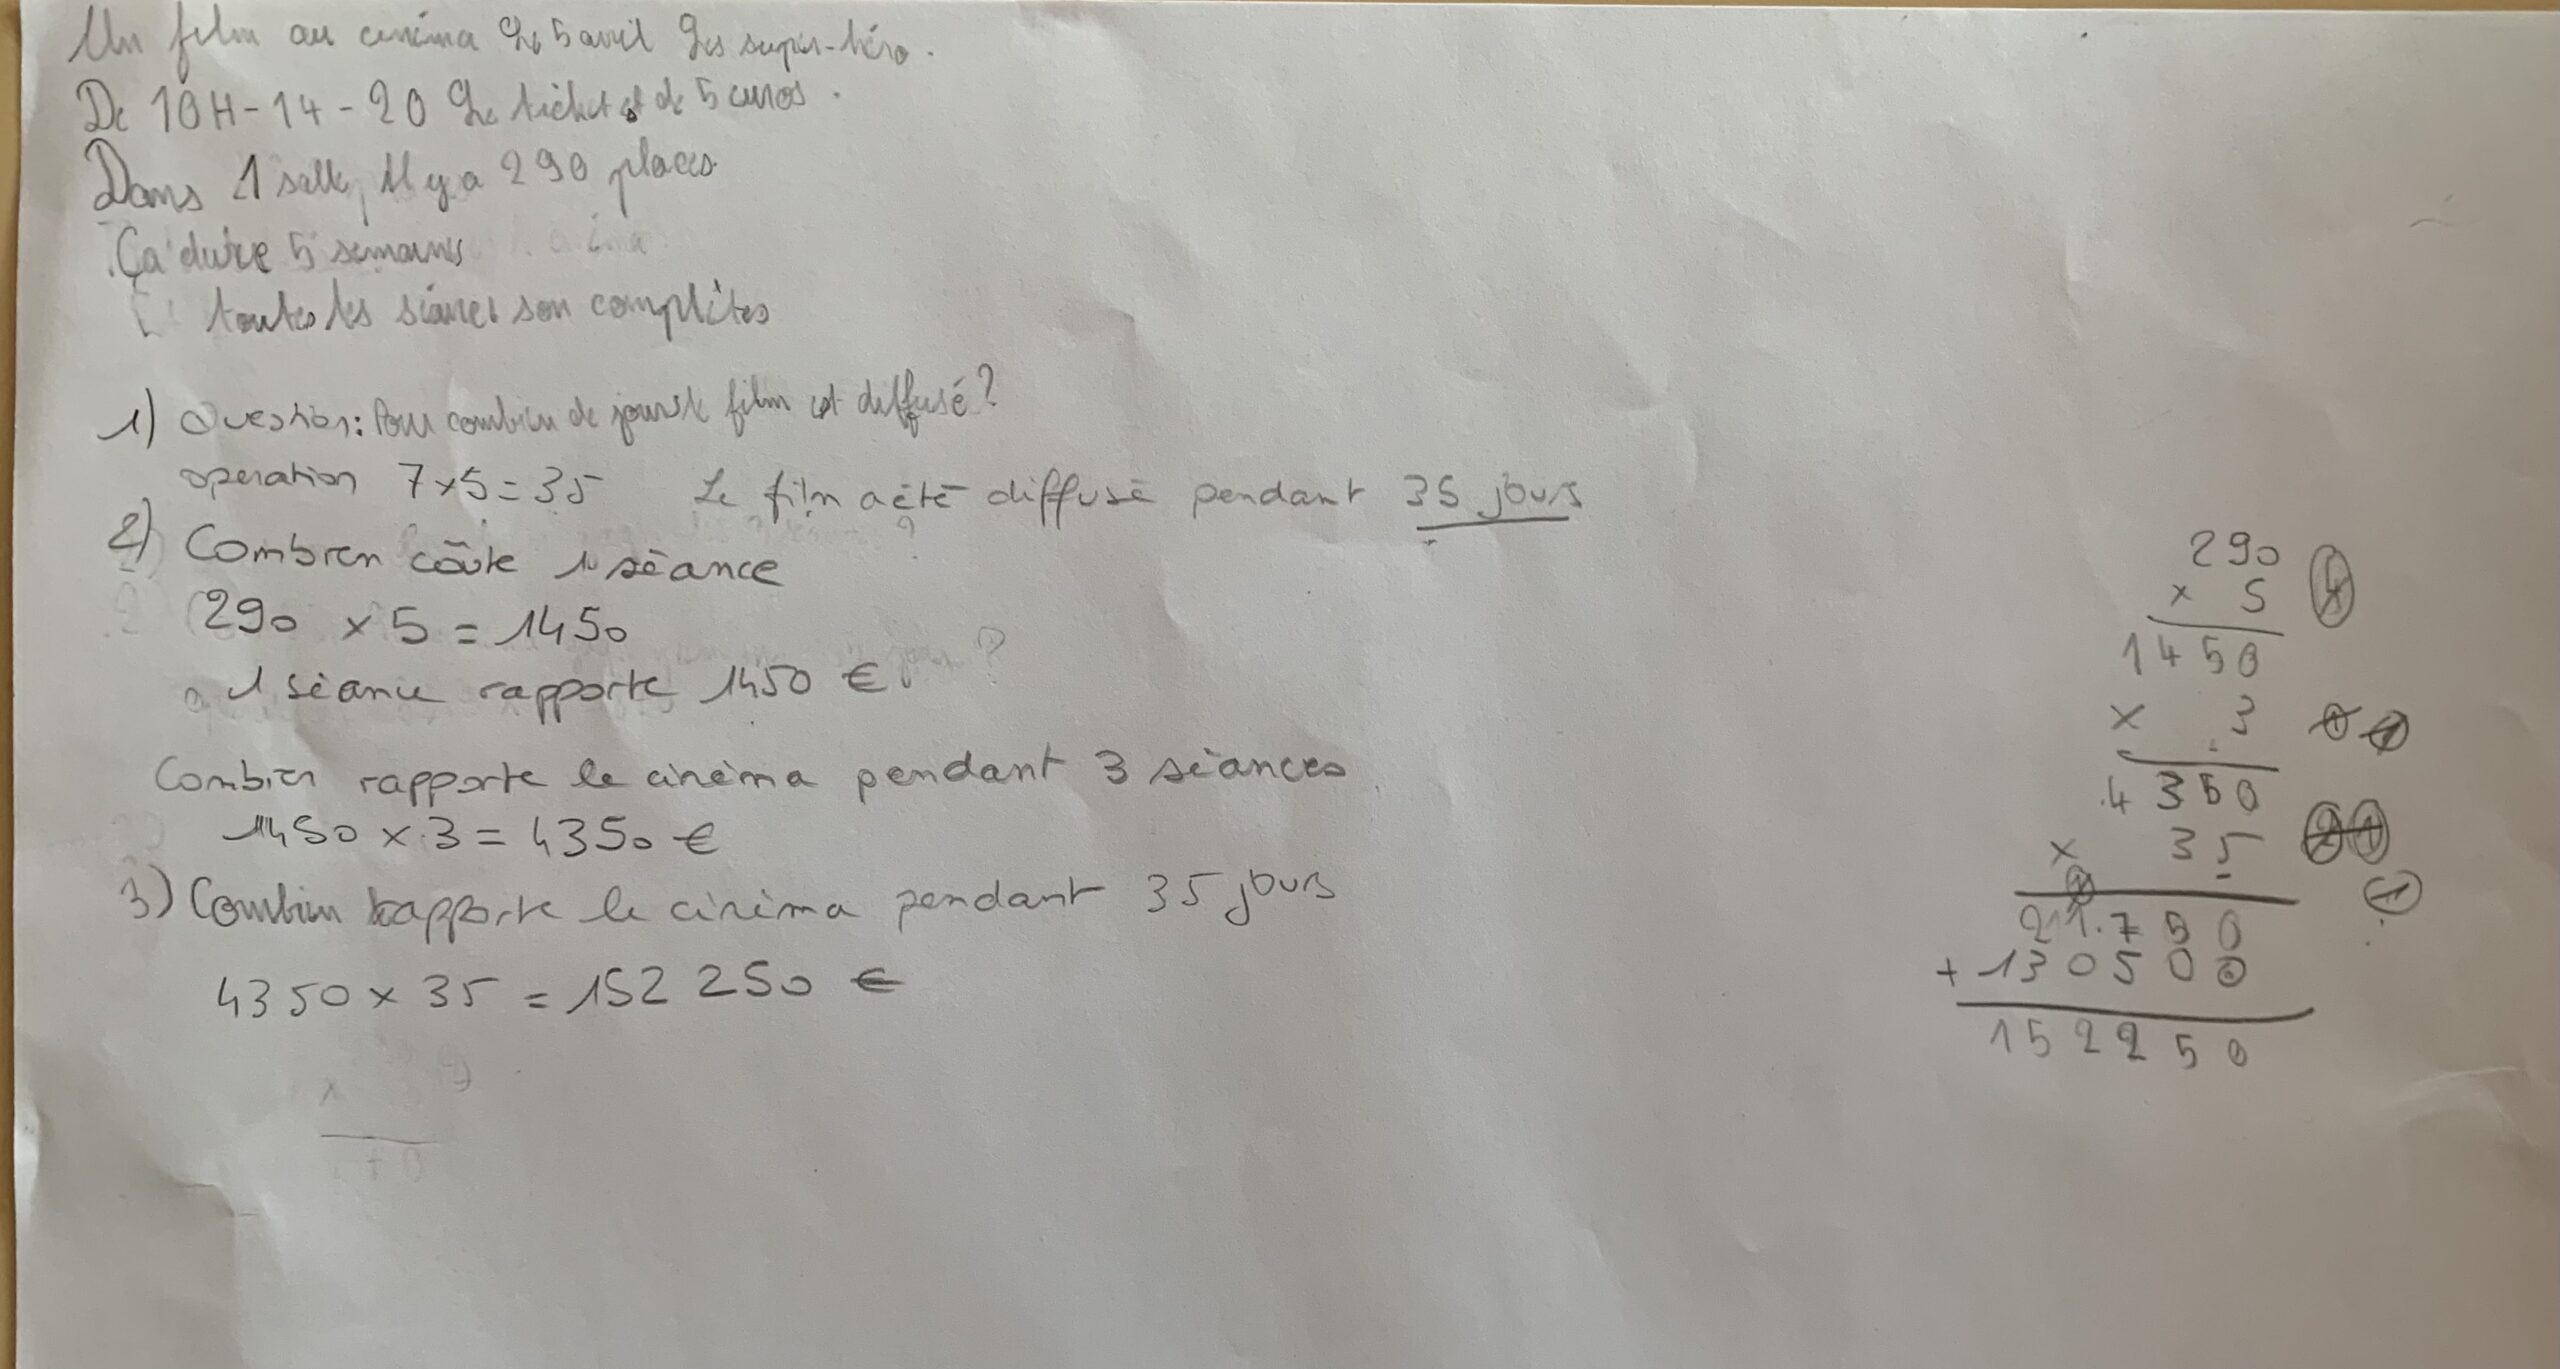 Un film au cinéma Le 5 avril Les super-héro.
De 10H-14-20 Le ticket est de 5 euros.
Dans 1 salle, il y a 290 places
Ça dure 5 semaines
toutes les séances son complètes
1) Question: Pour combien de jours le film est diffusé?
operation 7x5=35 Le film a été diffusé pendant 35 jours
2) Combien coûte 1 séance
290 x 5 = 1450
1 séance rapporte 1450 €
Combien rapporte le cinéma pendant 3 séances
1450 x 3 = 4350 €
3) Combien rapporte le cinéma pendant 35 jours
4350 x 35 = 152 250 €
290
x 5
1450
x 3
4350
x 35
21750
+ 130500
152250